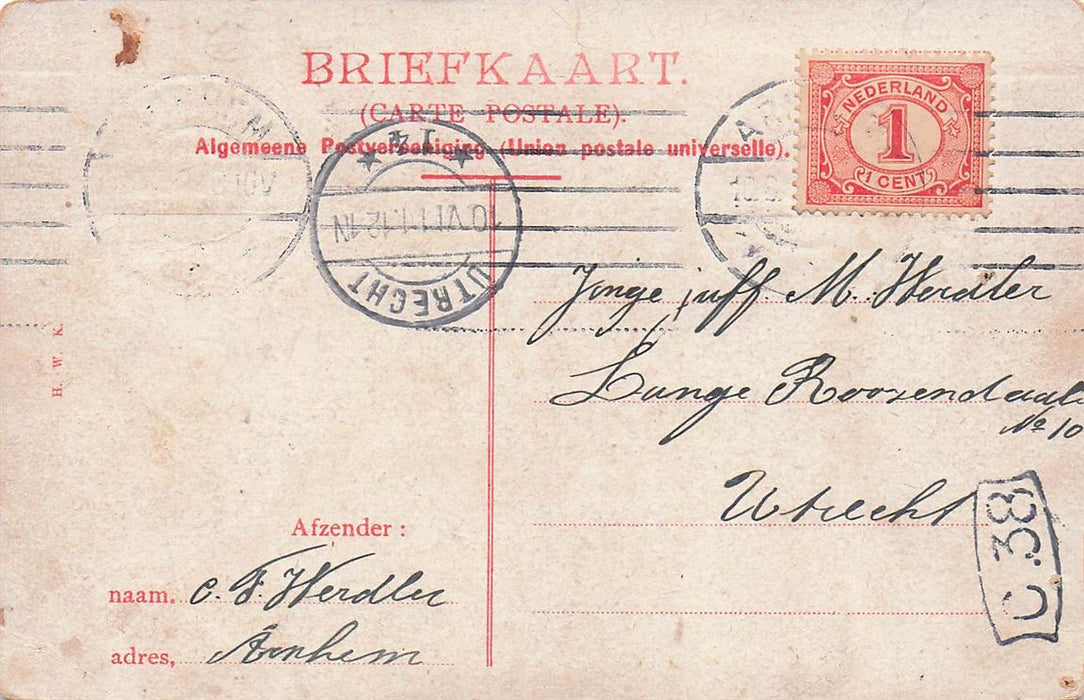 BRIEFKAART.
(CARTE POSTALE).
Algemeene Postvereeniging (Union postale universelle).
NEDERLAND
1
1 CENT
14
10.VI.11.1.12.1N
UTRECHT
Jonge juff. M. Werdler
Lange Roozendaal
No 10
Utrecht
C.38
H. W. K.
Afzender:
naam. C. F. Werdler
adres, Arnhem